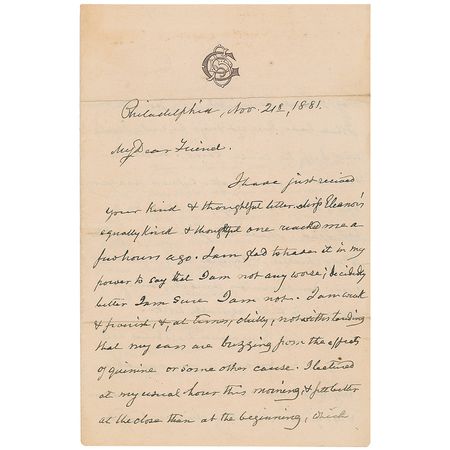 Philadelphia, Nov. 21st, 1881.
My Dear Friend.
I have just received
your kind & thoughtful letter. Miss Eleanor's
equally kind & thoughtful one reached me a
few hours ago. I am glad to have it in my
power to say that I am not any worse; decidedly
better I am sure I am not. I am weak
& &, at times, chilly, notwithstanding
that my ears are buzzing from the effects
of quinine or some other cause. I lectured
at my usual hour this morning, & felt better
at the close than at the beginning, which